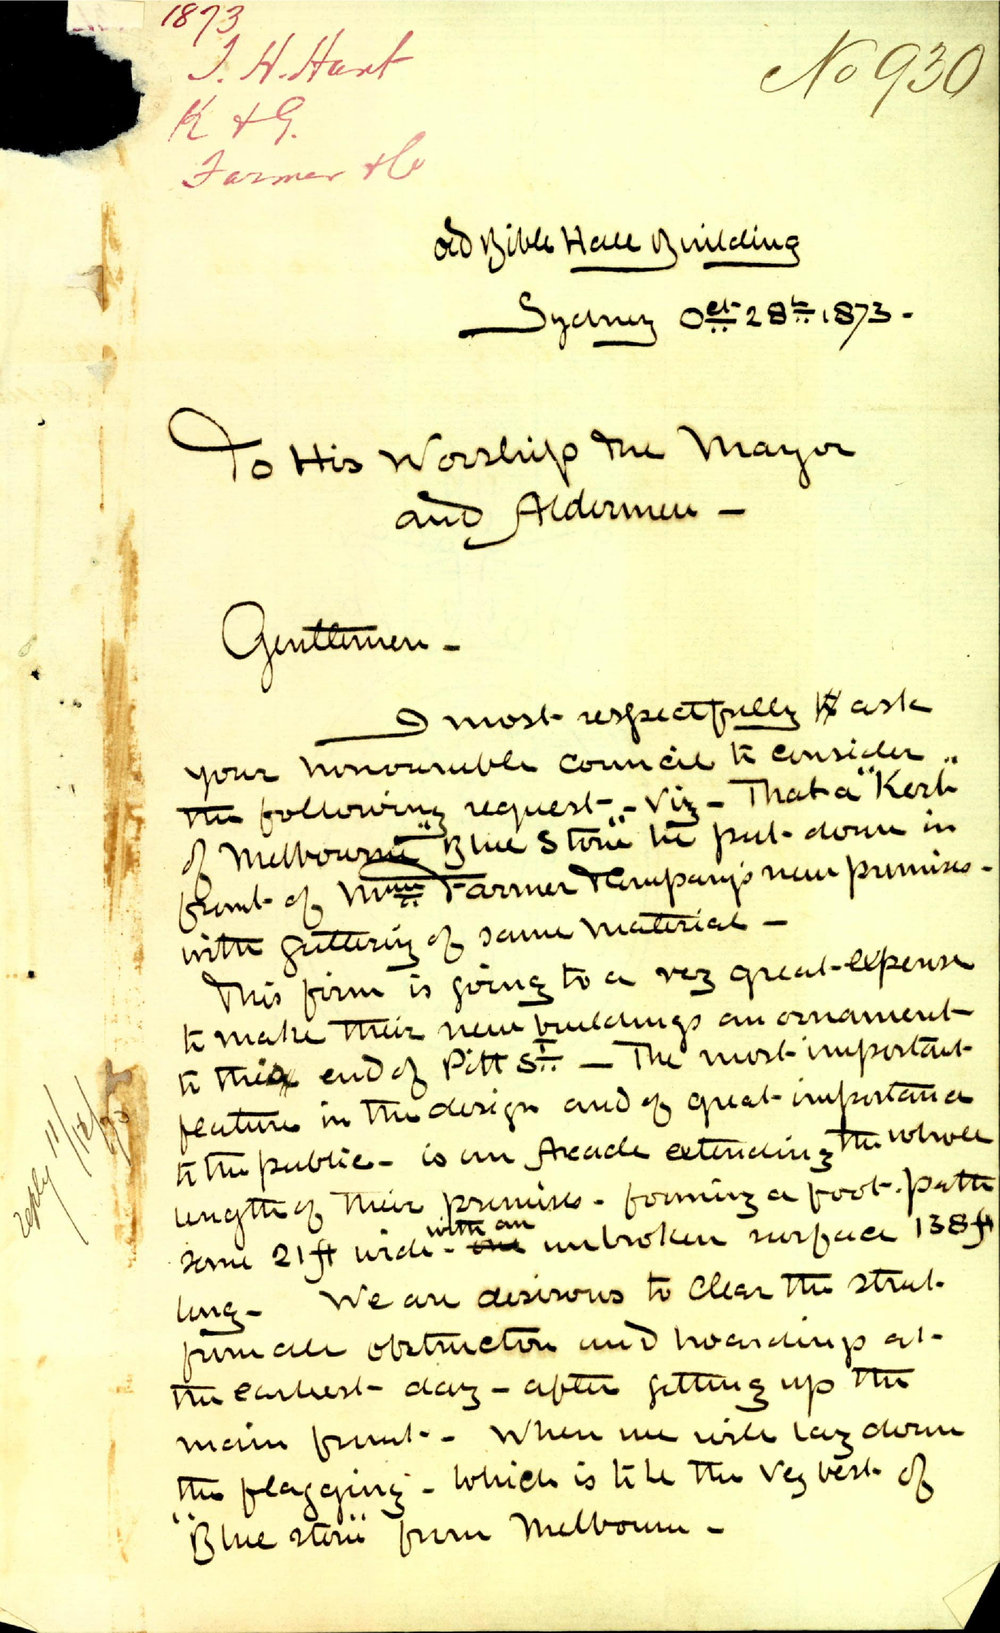 1873
J. H. Hart
K & G.
Farmer & Co
No 930
Old Bible Hall Building
Sydney Oct 28th 1873 -
To His Worship the Mayor
and Aldermen -
Gentlemen -
I most respectfully ask
your honourable council to consider
the following request - viz - That a "Kerb"
of Melbourne "Blue Stone" be put down in
front of Messrs Farmer & Company's new premises -
with guttering of same material -
This firm is going to a very great expense
to make their new buildings an ornament
to this end of Pitt St - The most important
feature in the design and of great importance
to the public - is an Arcade extending the whole
length of their premises - forming a foot-path
some 21 ft wide - with an unbroken surface 138 ft
long - We are desirous to clear the street
from all obstruction and hoardings at
the earliest day - after getting up the
main front - When we will lay down
the flagging - which is to be the very best of
"Blue stone" from Melbourne -
reply 11/12/73